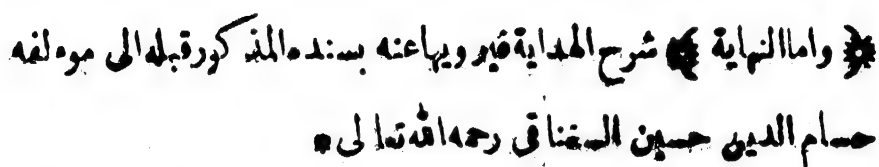 ﴿ واما النهاية ﴾ شرح الهداية فيرويها عنه بسنده المذكور قبله الى موءلفه
حسام الدين حسين السغناقى رحمه الله تعالى *